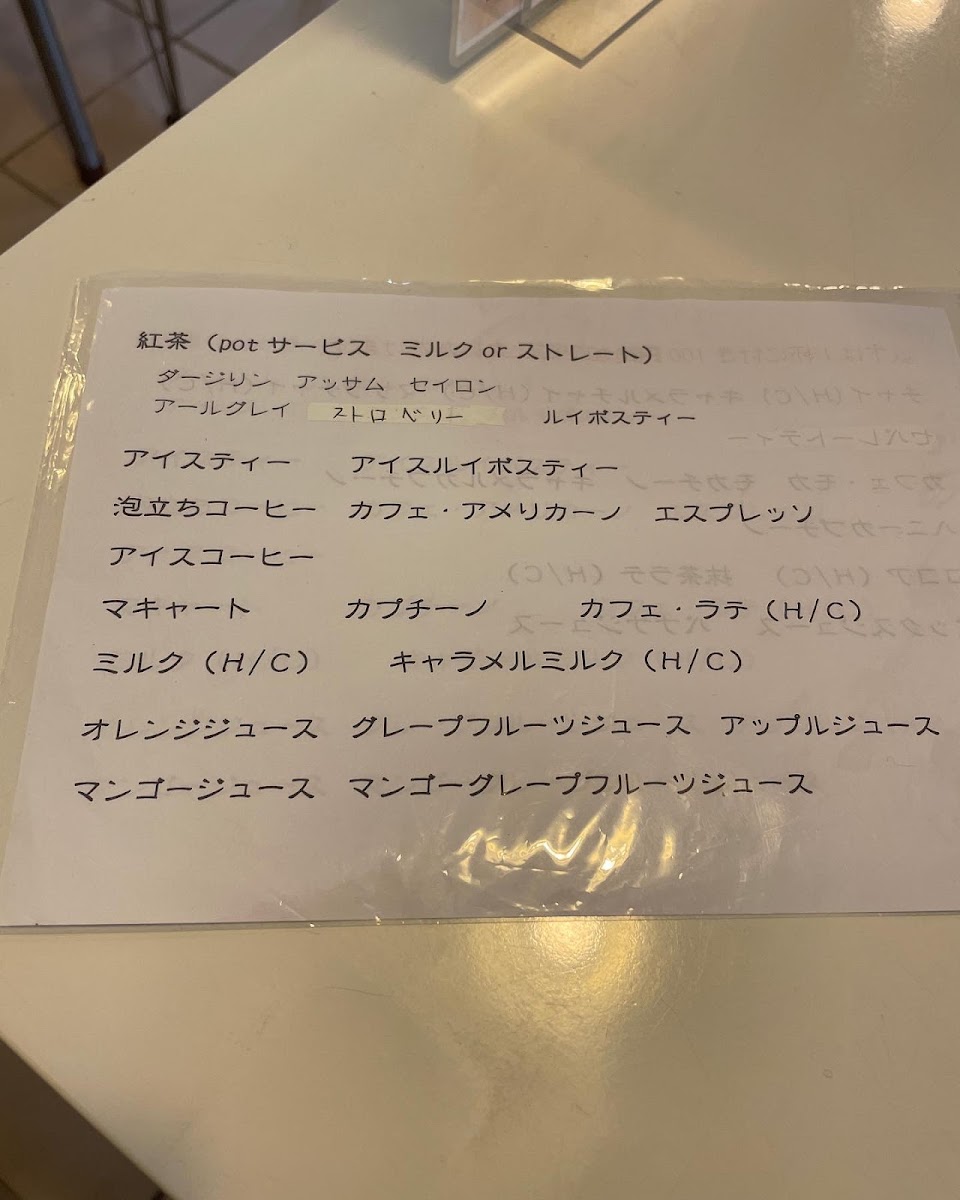 紅茶（pot サービス　ミルク or ストレート）
ダージリン　アッサム　セイロン
アールグレイ　ストロベリー　ルイボスティー
アイスティー　アイスルイボスティー
泡立ちコーヒー　カフェ・アメリカーノ　エスプレッソ
アイスコーヒー
マキャート　カプチーノ　カフェ・ラテ（H/C）
ミルク（H/C）　キャラメルミルク（H/C）
オレンジジュース　グレープフルーツジュース　アップルジュース
マンゴージュース　マンゴーグレープフルーツジュース